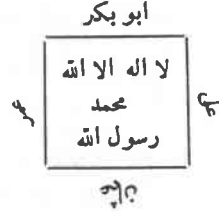 ابو بكر
لا اله الا الله
محمد
رسول الله
علي
عثمان
عمر